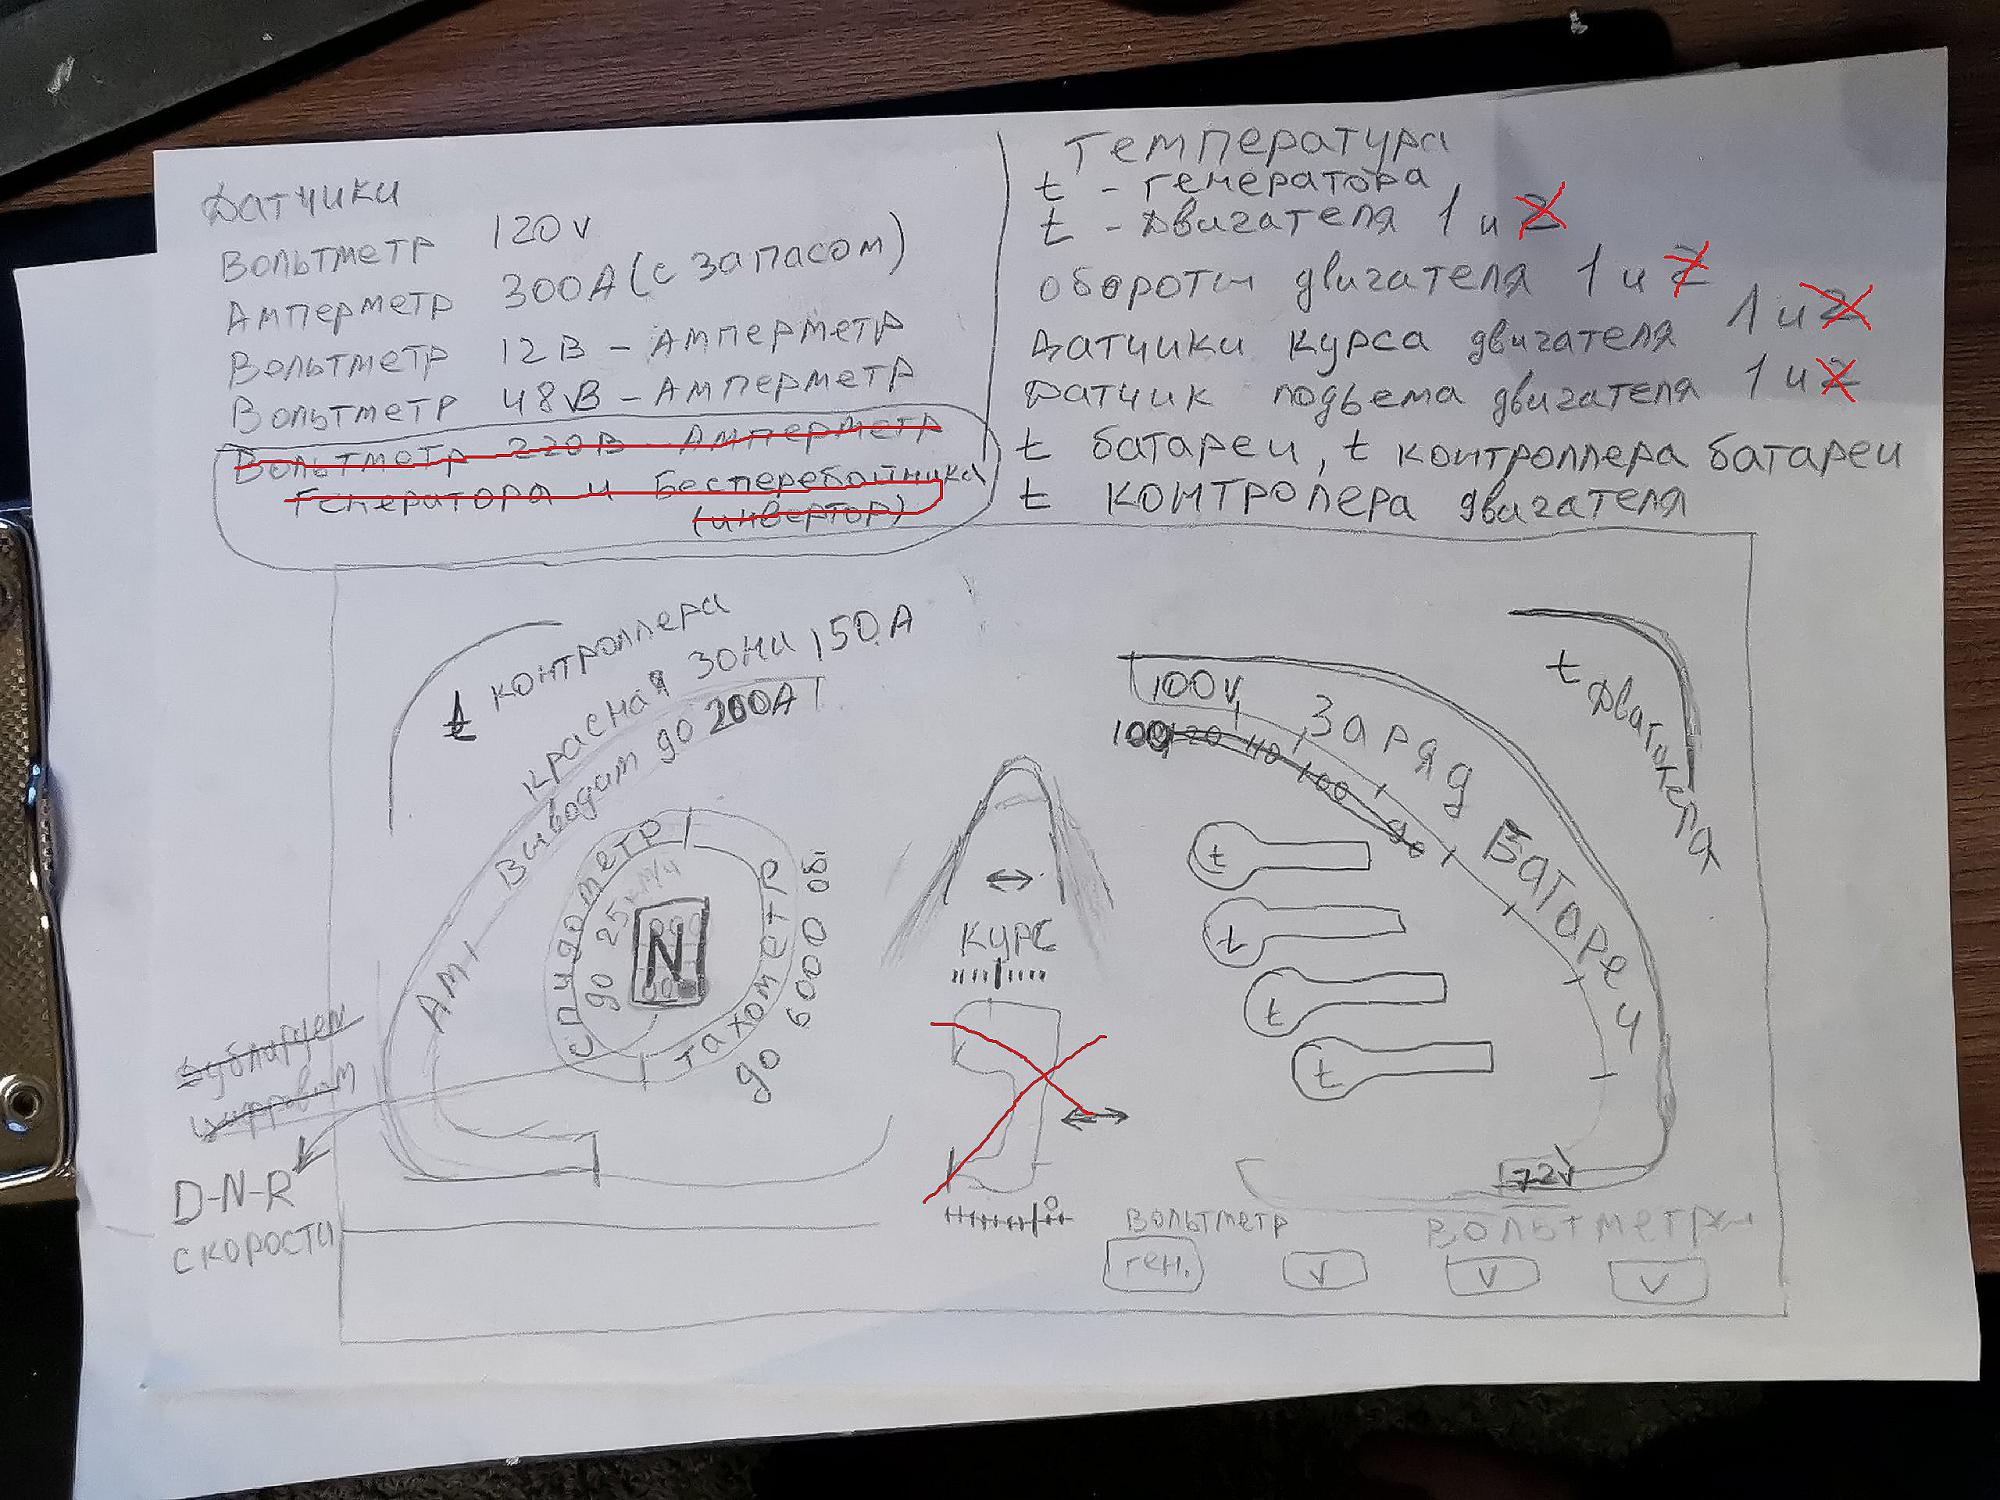 Датчики
Вольтметр 120v
Амперметр 300А (с запасом)
Вольтметр 12В - Амперметр
Вольтметр 48В - Амперметр
Вольтметр 220В - Амперметр
Генеритора и Бесперебойника
(инвертор)
Температура
t - генератора
t - Двигателя 1 и 2
обороты двигателя 1 и 2
Датчики курса двигателя 1 и 2
Датчик подьема двигателя 1 и 2
t батареи, t контроллера батареи
t контролера двигателя
t контроллера
красная зона 150А
Выводим до 200А
АМ1
спидометр
до 25км/ч
N
тахометр
до 6000 об
Дублируем
цифровым
D-N-R
скорости
курс
0
100v
Заряд Батареи
100 120 110 100 90
t двигателя
t
t
t
t
72v
Вольтметр
ген.
Вольтметры
v
v
v